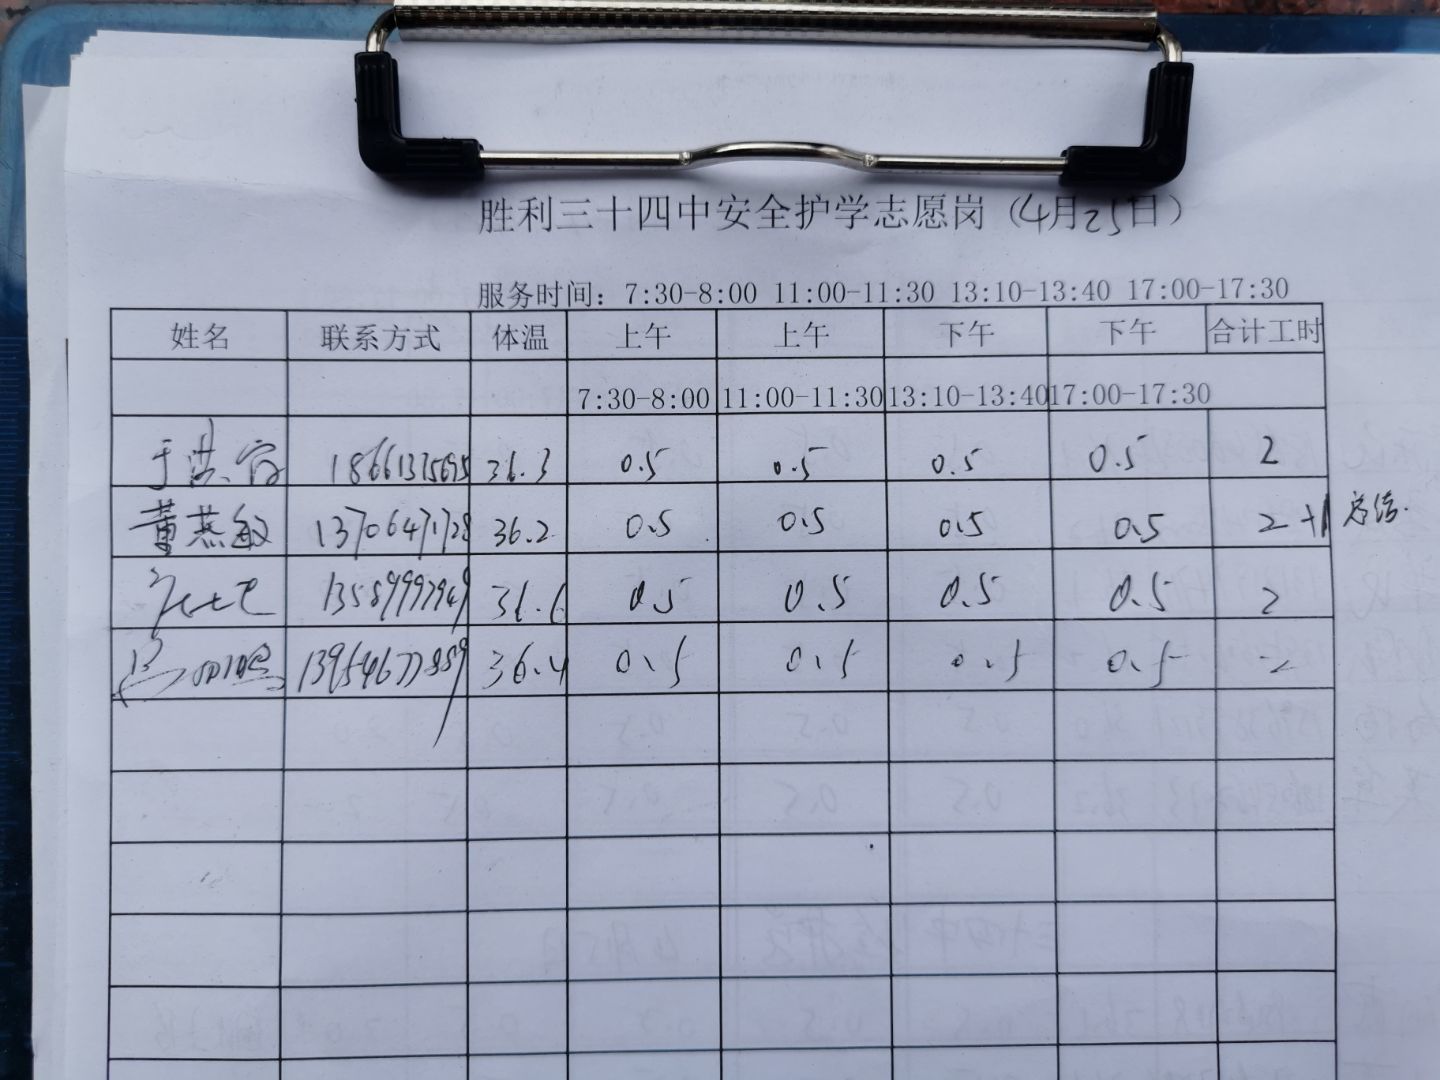 胜利三十四中安全护学志愿岗（4月25日）
服务时间：7:30-8:00 11:00-11:30 13:10-13:40 17:00-17:30
姓名 联系方式 体温 上午 上午 下午 下午 合计工时
7:30-8:00 11:00-11:30 13:10-13:40 17:00-17:30
于洪 18661375695 36.3 0.5 0.5 0.5 0.5 2
董燕敏 13706471728 36.2 0.5 0.5 0.5 0.5 2+1 总结.
36.6 0.5 0.5 0.5 0.5 2
13954677859 36.4 0.5 0.5 0.5 0.5 2